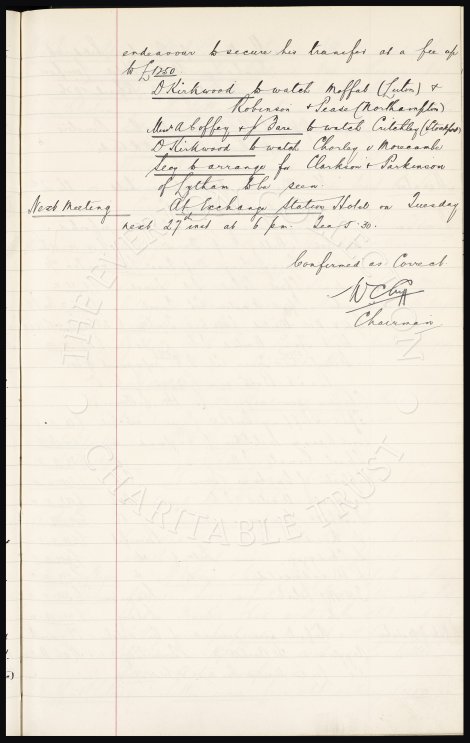 endeavour to secure his transfer at a fee up
to £1250
D Kirkwood to watch Moffat (Luton) &
Robinson & Pease (Northampton)
Messrs A Coffey & J Bare to watch Critchley (Stockport)
D Kirkwood to watch Chorley v Morecambe
Secy to arrange for Clarkson & Parkinson
of Lytham to be seen.
Next Meeting At Exchange Station Hotel on Tuesday
next 27th inst at 6 pm. Tea 5.30.
Confirmed as Correct
W C Cuff
Chairman
THE EVER
ON
CHARITABLE TRUST